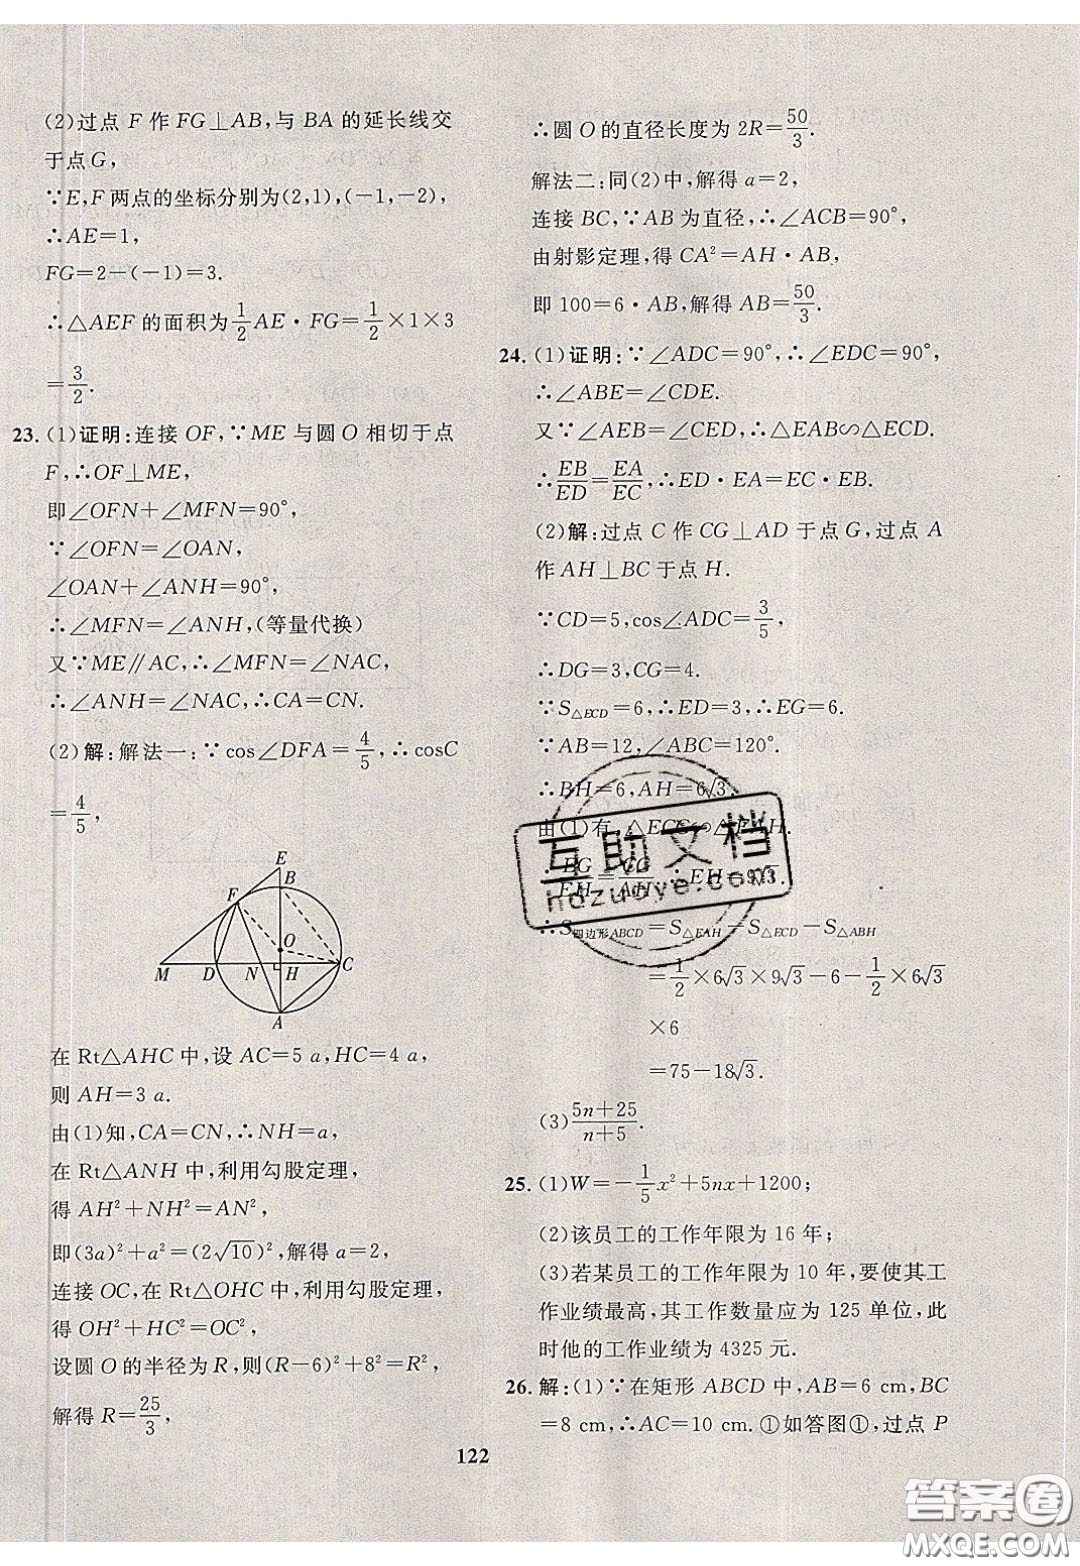 (2)过点 F 作 FG⊥AB,与 BA 的延长线交
于点G,
∵E,F 两点的坐标分别为(2,1),(−1,−2),
∴AE=1,
FG=2−(−1)=3.
∴△AEF 的面积为1/2 AE·FG=1/2×1×3
=3/2.
23. (1)证明:连接 OF,∵ME 与圆 O 相切于点
F,∴OF⊥ME,
即∠OFN+∠MFN=90°,
∵∠OFN=∠OAN,
∠OAN+∠ANH=90°,
∴∠MFN=∠ANH,(等量代换)
又∵ME∥AC,∴∠MFN=∠NAC,
∴∠ANH=∠NAC,∴CA=CN.
(2)解:解法一:∵cos∠DFA=4/5,∴cosC
=4/5,
E
B
F
O
M D N H C
A
在 Rt△AHC 中,设 AC=5 a,HC=4 a,
则 AH=3 a.
由(1)知,CA=CN,∴NH=a,
在 Rt△ANH 中,利用勾股定理,
得 AH²+NH²=AN²,
即(3a)²+a²=(2√10)²,解得 a=2,
连接 OC,在 Rt△OHC 中,利用勾股定理,
得 OH²+HC²=OC²,
设圆 O 的半径为 R,则(R−6)²+8²=R²,
解得 R=25/3,
∴圆 O 的直径长度为 2R=50/3.
解法二:同(2)中,解得 a=2,
连接 BC,∵AB 为直径,∴∠ACB=90°,
由射影定理,得 CA²=AH·AB,
即 100=6·AB,解得 AB=50/3.
24. (1)证明:∵∠ADC=90°,∴∠EDC=90°,
∴∠ABE=∠CDE.
又∵∠AEB=∠CED,∴△EAB∽△ECD.
∴EB/ED=EA/EC,∴ED·EA=EC·EB.
(2)解:过点 C 作 CG⊥AD 于点 G,过点 A
作 AH⊥BC 于点 H.
∵CD=5,cos∠ADC=3/5,
∴DG=3,CG=4.
∵S△ECD=6,∴ED=3,∴EG=6.
∵AB=12,∠ABC=120°.
∴BH=6,AH=6√3.
由(1)有,△ECG∽△EAH.
∴EG/EH=CG/AH,∴EH=9√3.
∴S四边形ABCD=S△EAH−S△ECD−S△ABH
=1/2×6√3×9√3−6−1/2×6√3
×6
=75−18√3.
(3)(5n+25)/(n+5).
25. (1)W=−1/5x²+5nx+1200;
(2)该员工的工作年限为 16 年;
(3)若某员工的工作年限为 10 年,要使其工
作业绩最高,其工作数量应为 125 单位,此
时他的工作业绩为 4325 元.
26. 解:(1)∵在矩形 ABCD 中,AB=6 cm,BC
=8 cm,∴AC=10 cm.①如答图①,过点 P
122
互助文档
hdzuoye.com
答案卷
MXQE.COM